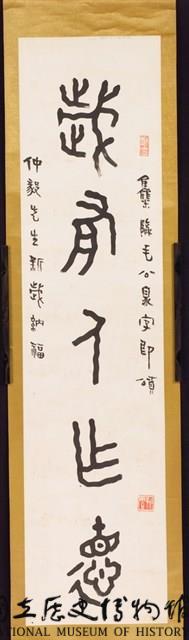 集
毛公鼎字即頌
歲有人乍悳
仲毅先生新歲納福
立歷史博物館
TIONAL MUSEUM OF HISTOR